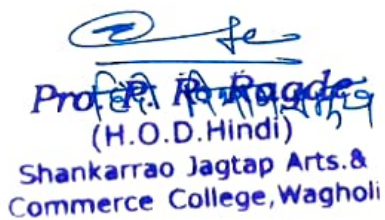 Prof. P. R. Ragde
हिंदी विभाग प्रमुख
(H.O.D.Hindi)
Shankarrao Jagtap Arts.&
Commerce College,Wagholi